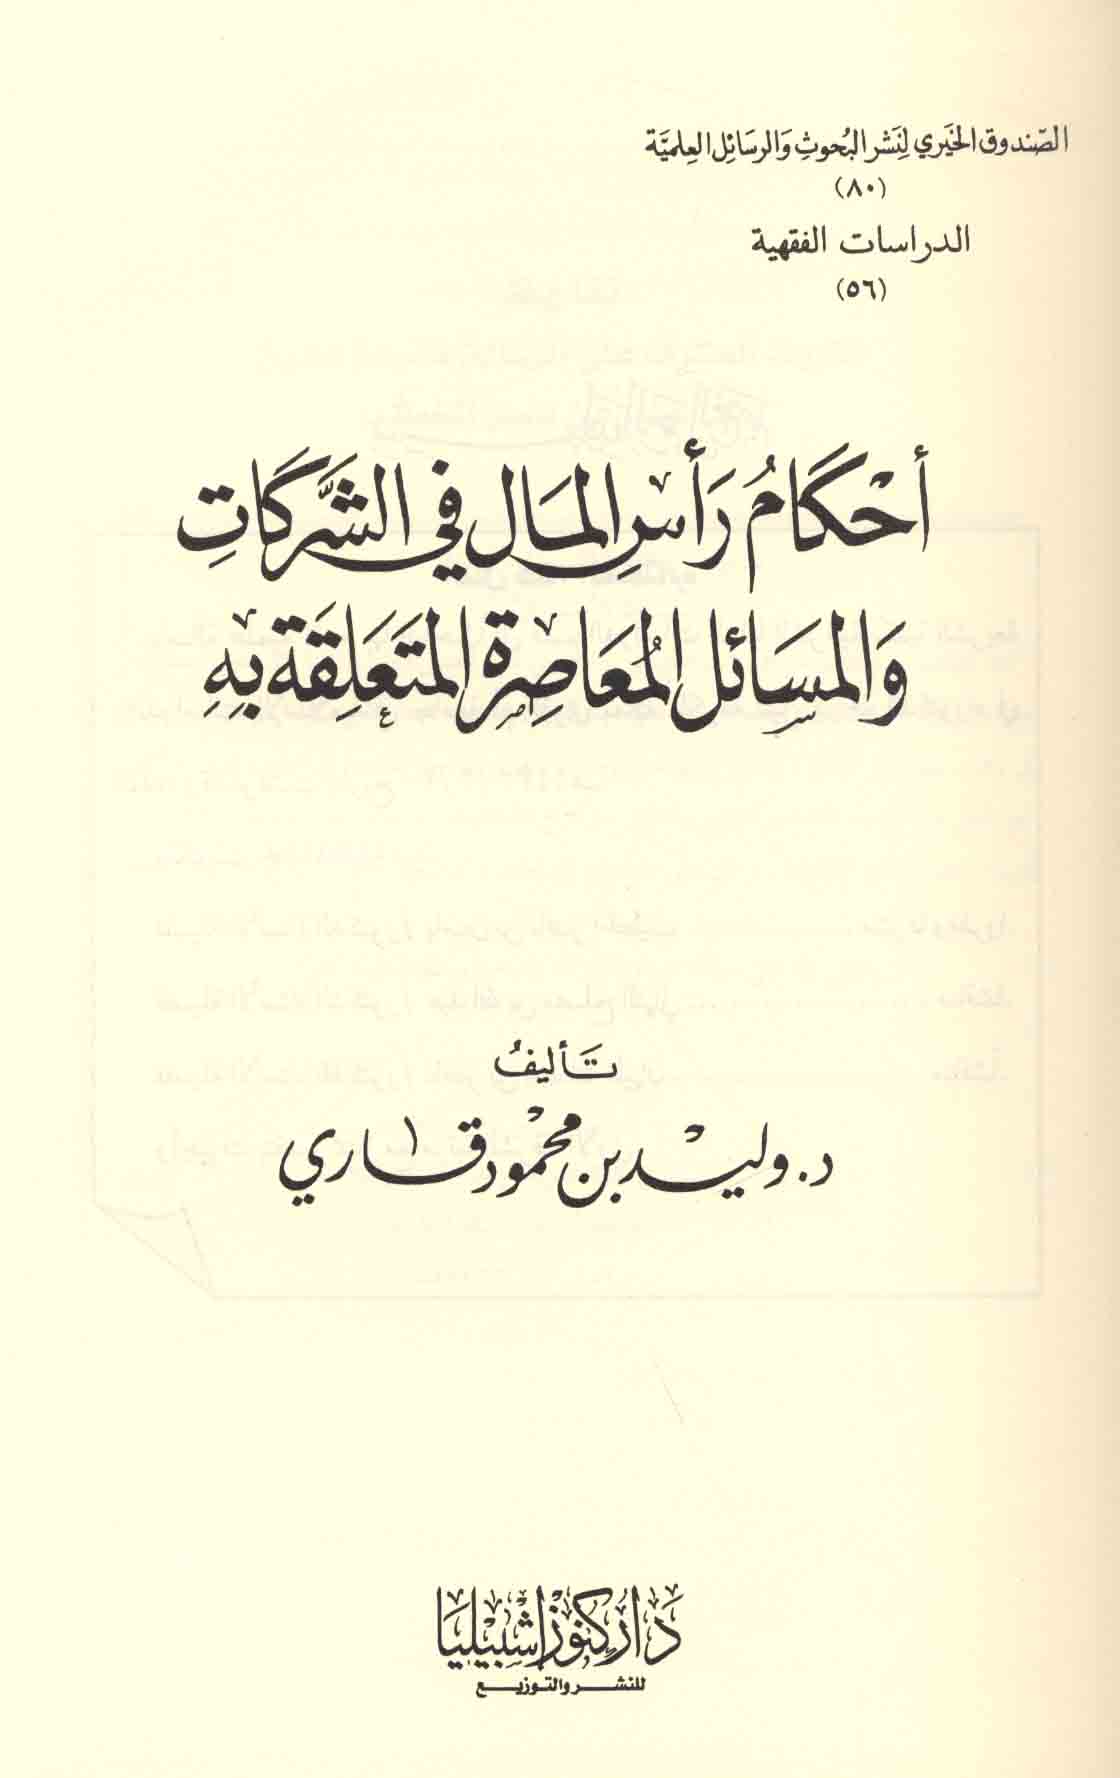 الصّندوق الخَيري لِنَشر البُحوثِ وَالرسَائِل العِلميَّة
(٨٠)
الدراسات الفقهية
(٥٦)
أحْكَامُ رَأسِ المَال في الشَّرِكَاتِ
وَالمسَائل المُعَاصِرة المتَعَلِقَة بِهِ
تَأليفُ
د. وليد بن محمود قاري
دَار كنوز إشبيليا
للنشر والتوزيع